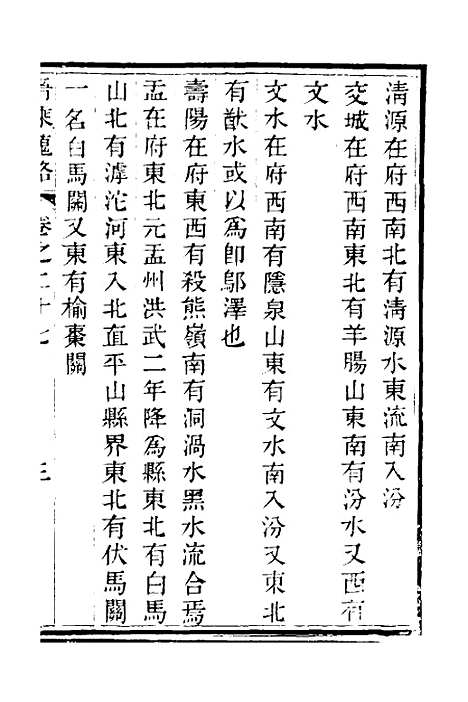 清源在府西南北有清源水東流南入汾
交城在府西南東北有羊腸山東南有汾水又西有
文水
文水在府西南有隱泉山東有文水南入汾又東北
有猷水或以爲卽鄔澤也
壽陽在府東西有殺熊嶺南有洞渦水黑水流合焉
盂在府東北元盂州洪武二年降爲縣東北有白馬
山北有滹沱河東入北直平山縣界東北有伏馬關
一名白馬關又東有榆棗關
晉乘蒐略 卷之二十七 三